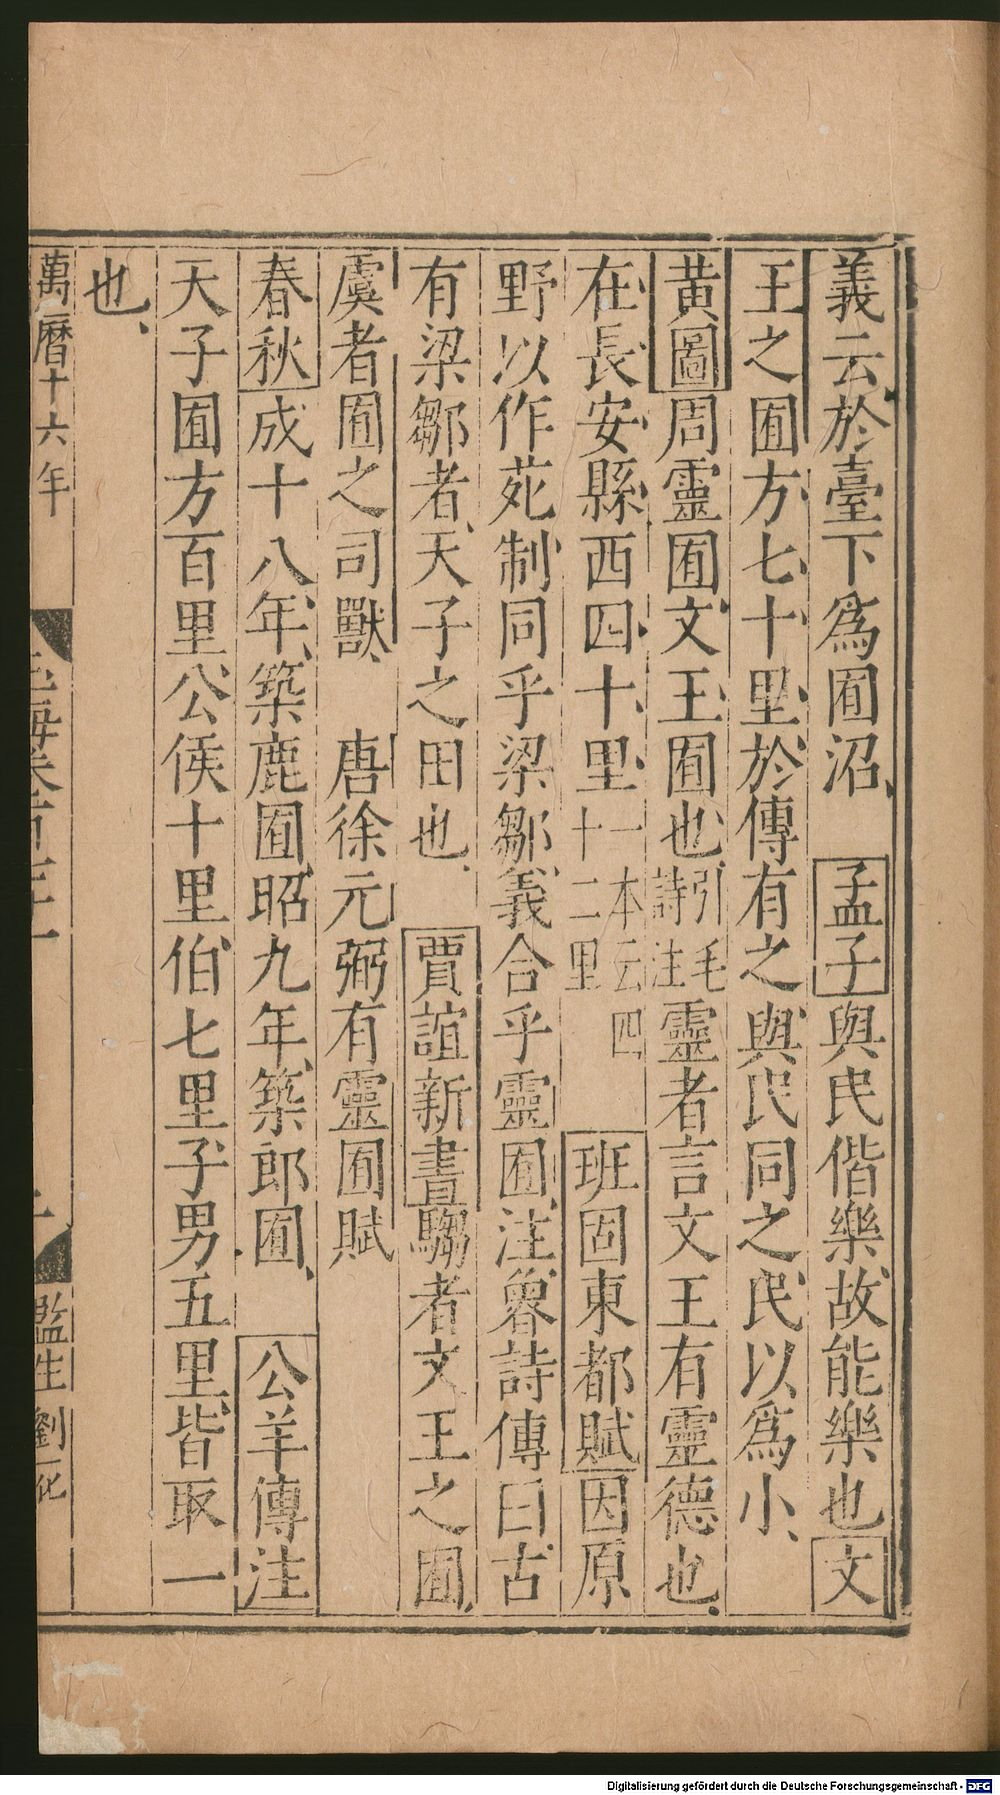 義云於臺下爲囿沼、 孟子與民偕樂故能樂也文
王之囿方七十里於傳有之與民同之民以爲小、
黃圖周靈囿文王囿也引毛詩注靈者言文王有靈德也、
在長安縣西四十里一本云四十二里 班固東都賦因原
野以作苑制同乎梁鄒義合乎靈囿、注魯詩傳曰古
有梁鄒者、天子之田也、 賈誼新書騶者文王之囿、
虞者囿之司獸、 唐徐元弼有靈囿賦
春秋成十八年、築鹿囿、昭九年、築郎囿、 公羊傳注
天子囿方百里公侯十里伯七里子男五里皆取一
也、
萬曆十六年 玉海卷百三十一 二 監生劉一化
Digitalisierung gefördert durch die Deutsche Forschungsgemeinschaft - DFG